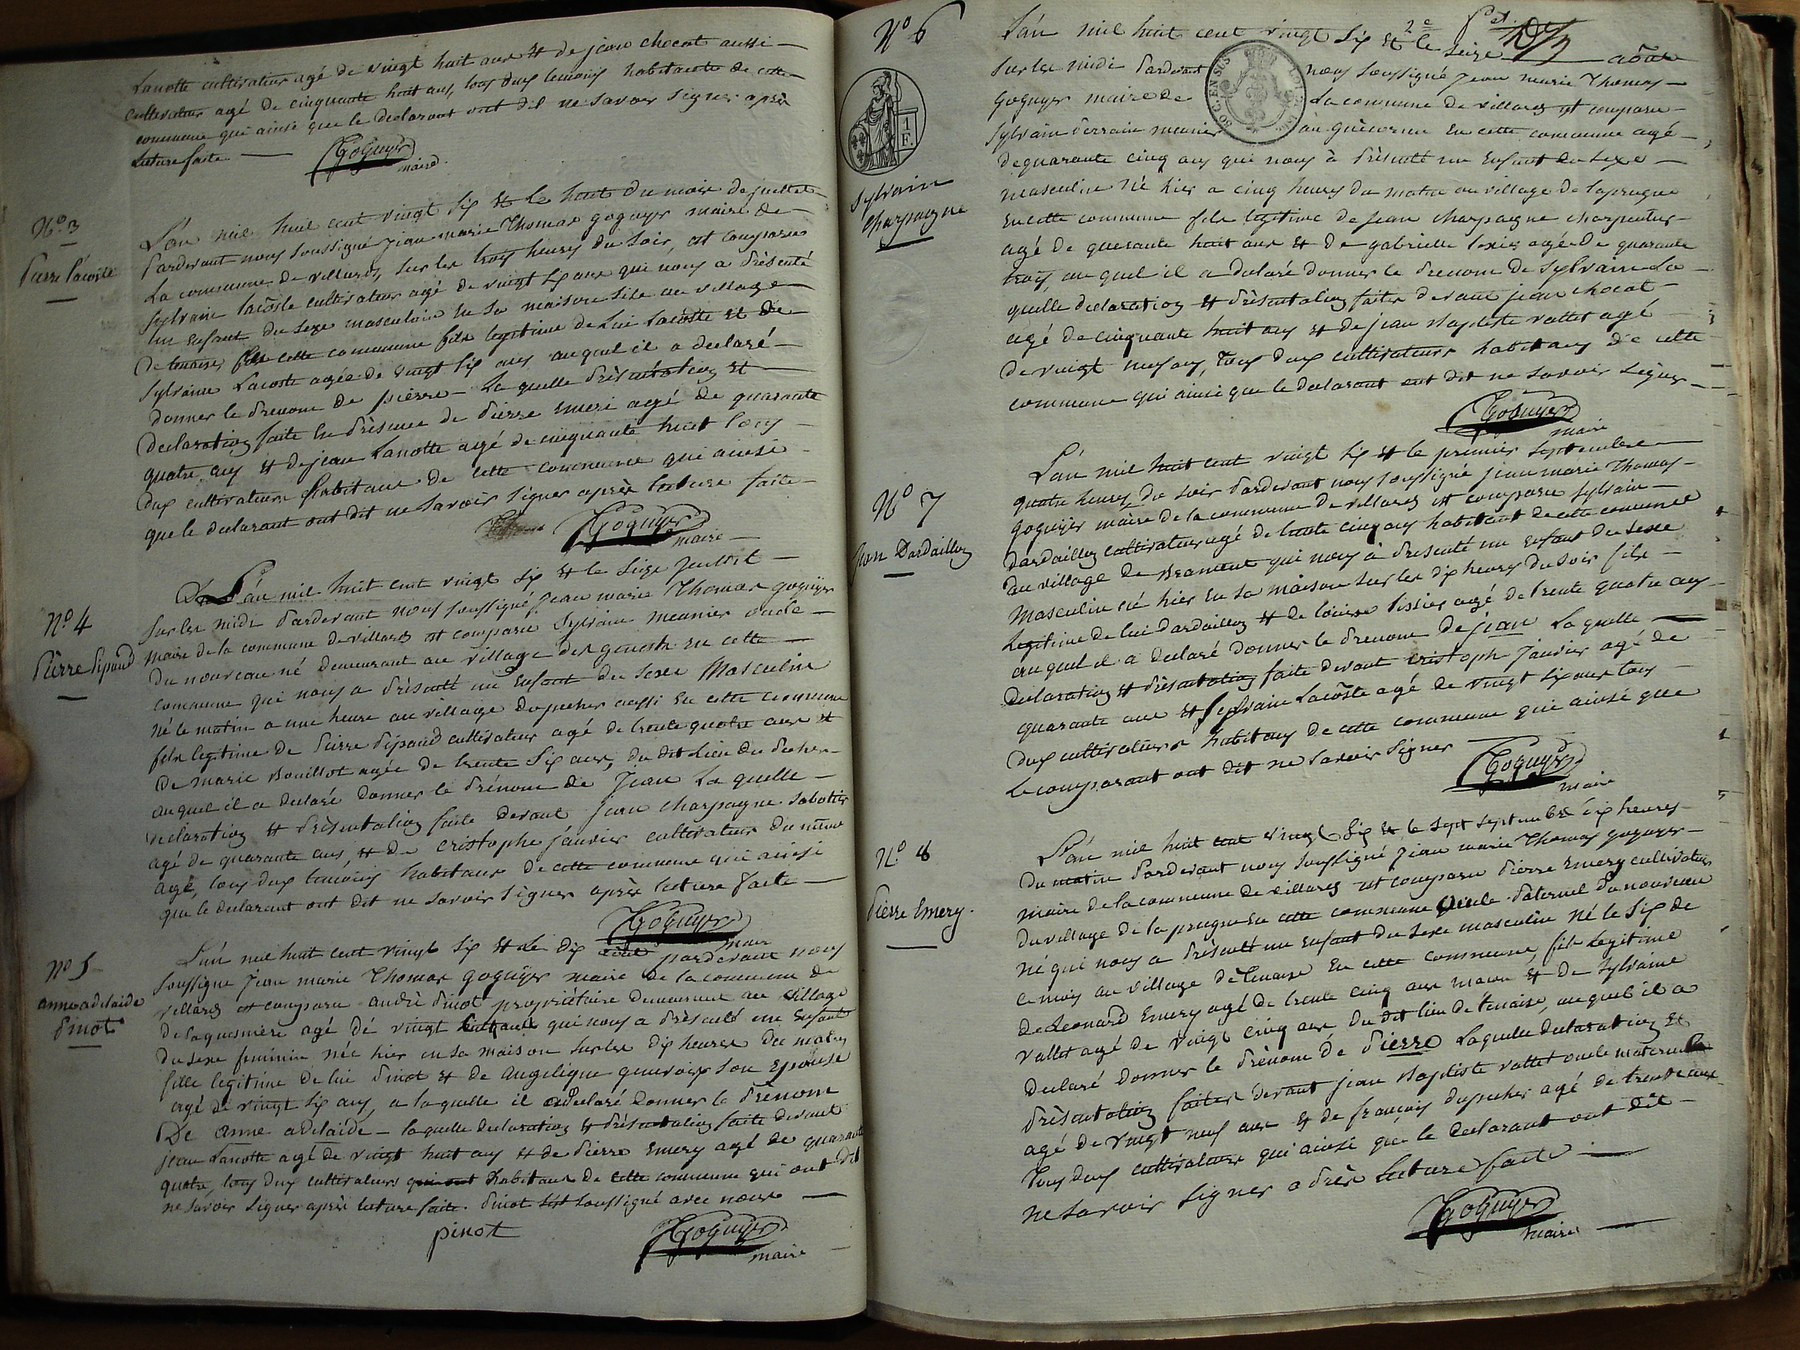 Lanotte cultivateur agé de vingt huit ans et de jean chocat aussi
cultivateur agé de cinquante huit ans, tous deux temoins habitants de cette
commune qui ainsi que le declarant ont dit ne savoir signer après
lecture faite
Goguyer
maire.
N° 3
Pierre Lacoste
L'an mil huit cent vingt six et le huit du mois de juillet
Pardevant nous soussigné jean marie Thomas goguyer maire de
La commune de villards, sur les trois heures du soir, est comparu
sylvain lacoste cultivateur agé de vingt six ans qui nous a présenté
un enfant du sexe masculin en sa maison sise au village
de tenaise cette commune fils legitime de lui lacoste et de
sylvaine Lacoste agée de vingt six ans auquel il a declaré
donner le prenom de pierre La quelle présentation et
declaration faite en présence de Pierre Emeri agé de quarante
quatre ans et de jean Lanotte agé de cinquante huit tous
deux cultivateurs habitans de cette commune qui ainsi
que le declarant ont dit ne savoir signer après lecture faite
Goguyer
maire
N° 4
Pierre Pipaud
L'an mil huit cent vingt six et le seize juillet
sur les midi Pardevant nous soussigné jean marie Thomas goguyer
maire de la commune de villards est comparu sylvain meunier oncle
du nouveau né demeurant au village des genets en cette
commune qui nous a présenté un enfant du sexe Masculin
né le matin a une heure au village dupecher aussi en cette commune
fils legitime de Pierre Pipaud cultivateur agé de trente quatre ans et
de marie Bouillot agée de trente six ans, du dit lieu du Pecher
auquel il a declaré donner le prénom de Jean La quelle
declaration et présentation faite devant jean charpagne sabotier
agé de quarante ans, et de cristophe janvier cultivateur du même
age, tous deux temoins habitans de cette commune qui ainsi
que le declarant ont dit ne savoir signer après lecture faite
Goguyer
maire
N° 5
anne adelaide
Pinot
L'an mil huit cent vingt six et le dix août pardevant nous
soussigné Jean marie Thomas goguyer maire de la commune de
villards est comparu andré Pinot propriétaire demeurant au village
agé de vingt huit ans qui nous a présenté un Enfant
du sexe feminin née hier en sa maison sur les dix heures du matin
fille legitime de lui Pinot et de angelique son Epouse
agé de vingt six ans, a laquelle il a declaré donner le prénom
De anne adelaide laquelle declaration et présentation faite devant
jean Lanotte agé de vingt huit ans et de Pierre Emery agé de quarante
quatre, tous deux cultivateurs habitans de cette commune qui ont dit
ne savoir signer après lecture faite. Pinot soussigné avec nous
pinot
Goguyer
maire
N° 6
sylvain
charpagne
L'an mil huit cent vingt six et le seize août
sur les midi Pardevant nous soussigné jean marie Thomas
goguyer maire de La commune de villards est comparu
sylvain Perrain meunier en cette commune agé
de quarante cinq ans qui nous à Présenté un Enfant du sexe
masculin né hier a cinq heures du matin au village de laprugne
en cette commune fils legitime de jean charpagne charpentier
agé de quarante huit ans et de gabrielle agé de quarante
trois auquel il a declaré donner le Prenom de sylvain La
quelle declaration et présentation faite devant jean chocat
agé de cinquante huit ans et de jean Baptiste vallet agé
de vingt neuf ans, tous deux cultivateurs habitans de cette
commune qui ainsi que le declarant ont dit ne savoir signer
Goguyer
maire
N° 7
Jean Dardaillon
L'an mil huit cent vingt six et le premier septembre
quatre heures du soir Pardevant nous soussigné jean marie Thomas
goguyer maire de la commune de villards est comparu sylvain
dardaillon cultivateur agé de trente cinq ans habitant de cette commune
du village de qui nous à presenté un enfant du sexe
Masculin né hier en sa maison sur les dix heures du soir fils
Legitime de lui dardaillon et de louise agé de trente quatre ans
auquel il a declaré donner le prenom de jean La quelle
declaration et présentation faite devant cristoph janvier agé de
quarante ans et sylvain Lacoste agé de vingt six ans tous
deux cultivateurs habitans de cette commune qui ainsi que
le comparant ont dit ne savoir signer
Goguyer
maire
N° 8
Pierre Emery.
L'an mil huit cent vingt six et le sept septembre dix heures
du matin Pardevant nous soussigné jean marie Thomas goguyer
maire de la commune de villards est comparu Pierre Emery cultivateur
du village de la prugne en cette commune oncle Paternel du nouveau
né qui nous a présenté un enfant du sexe masculin né le six de
ce mois au village de tenaise en cette commune, fils Legitime
de Léonard Emery agé de trente cinq ans maçon et de Sylvaine
vallet agé de vingt cinq ans du dit lieu de tenaise, auquel il a
declaré donner le prénom de Pierre laquelle declaration et
présentation faites devant jean Baptiste vallet oncle maternel
agé de vingt neuf ans et de françois dupecher agé de trente ans
tous deux cultivateurs qui ainsi que le declarant ont dit
ne savoir signer après lecture faite
Goguyer
maire